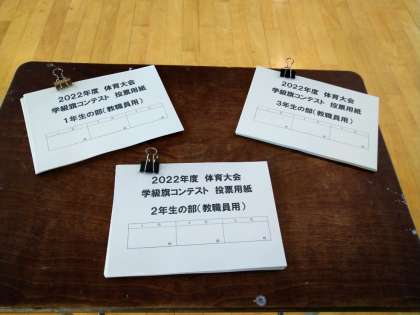 2022年度 体育大会
学級旗コンテスト 投票用紙
1年生の部(教職員用)
2022年度 体育大会
学級旗コンテスト 投票用紙
3年生の部(教職員用)
2022年度 体育大会
学級旗コンテスト 投票用紙
2年生の部(教職員用)